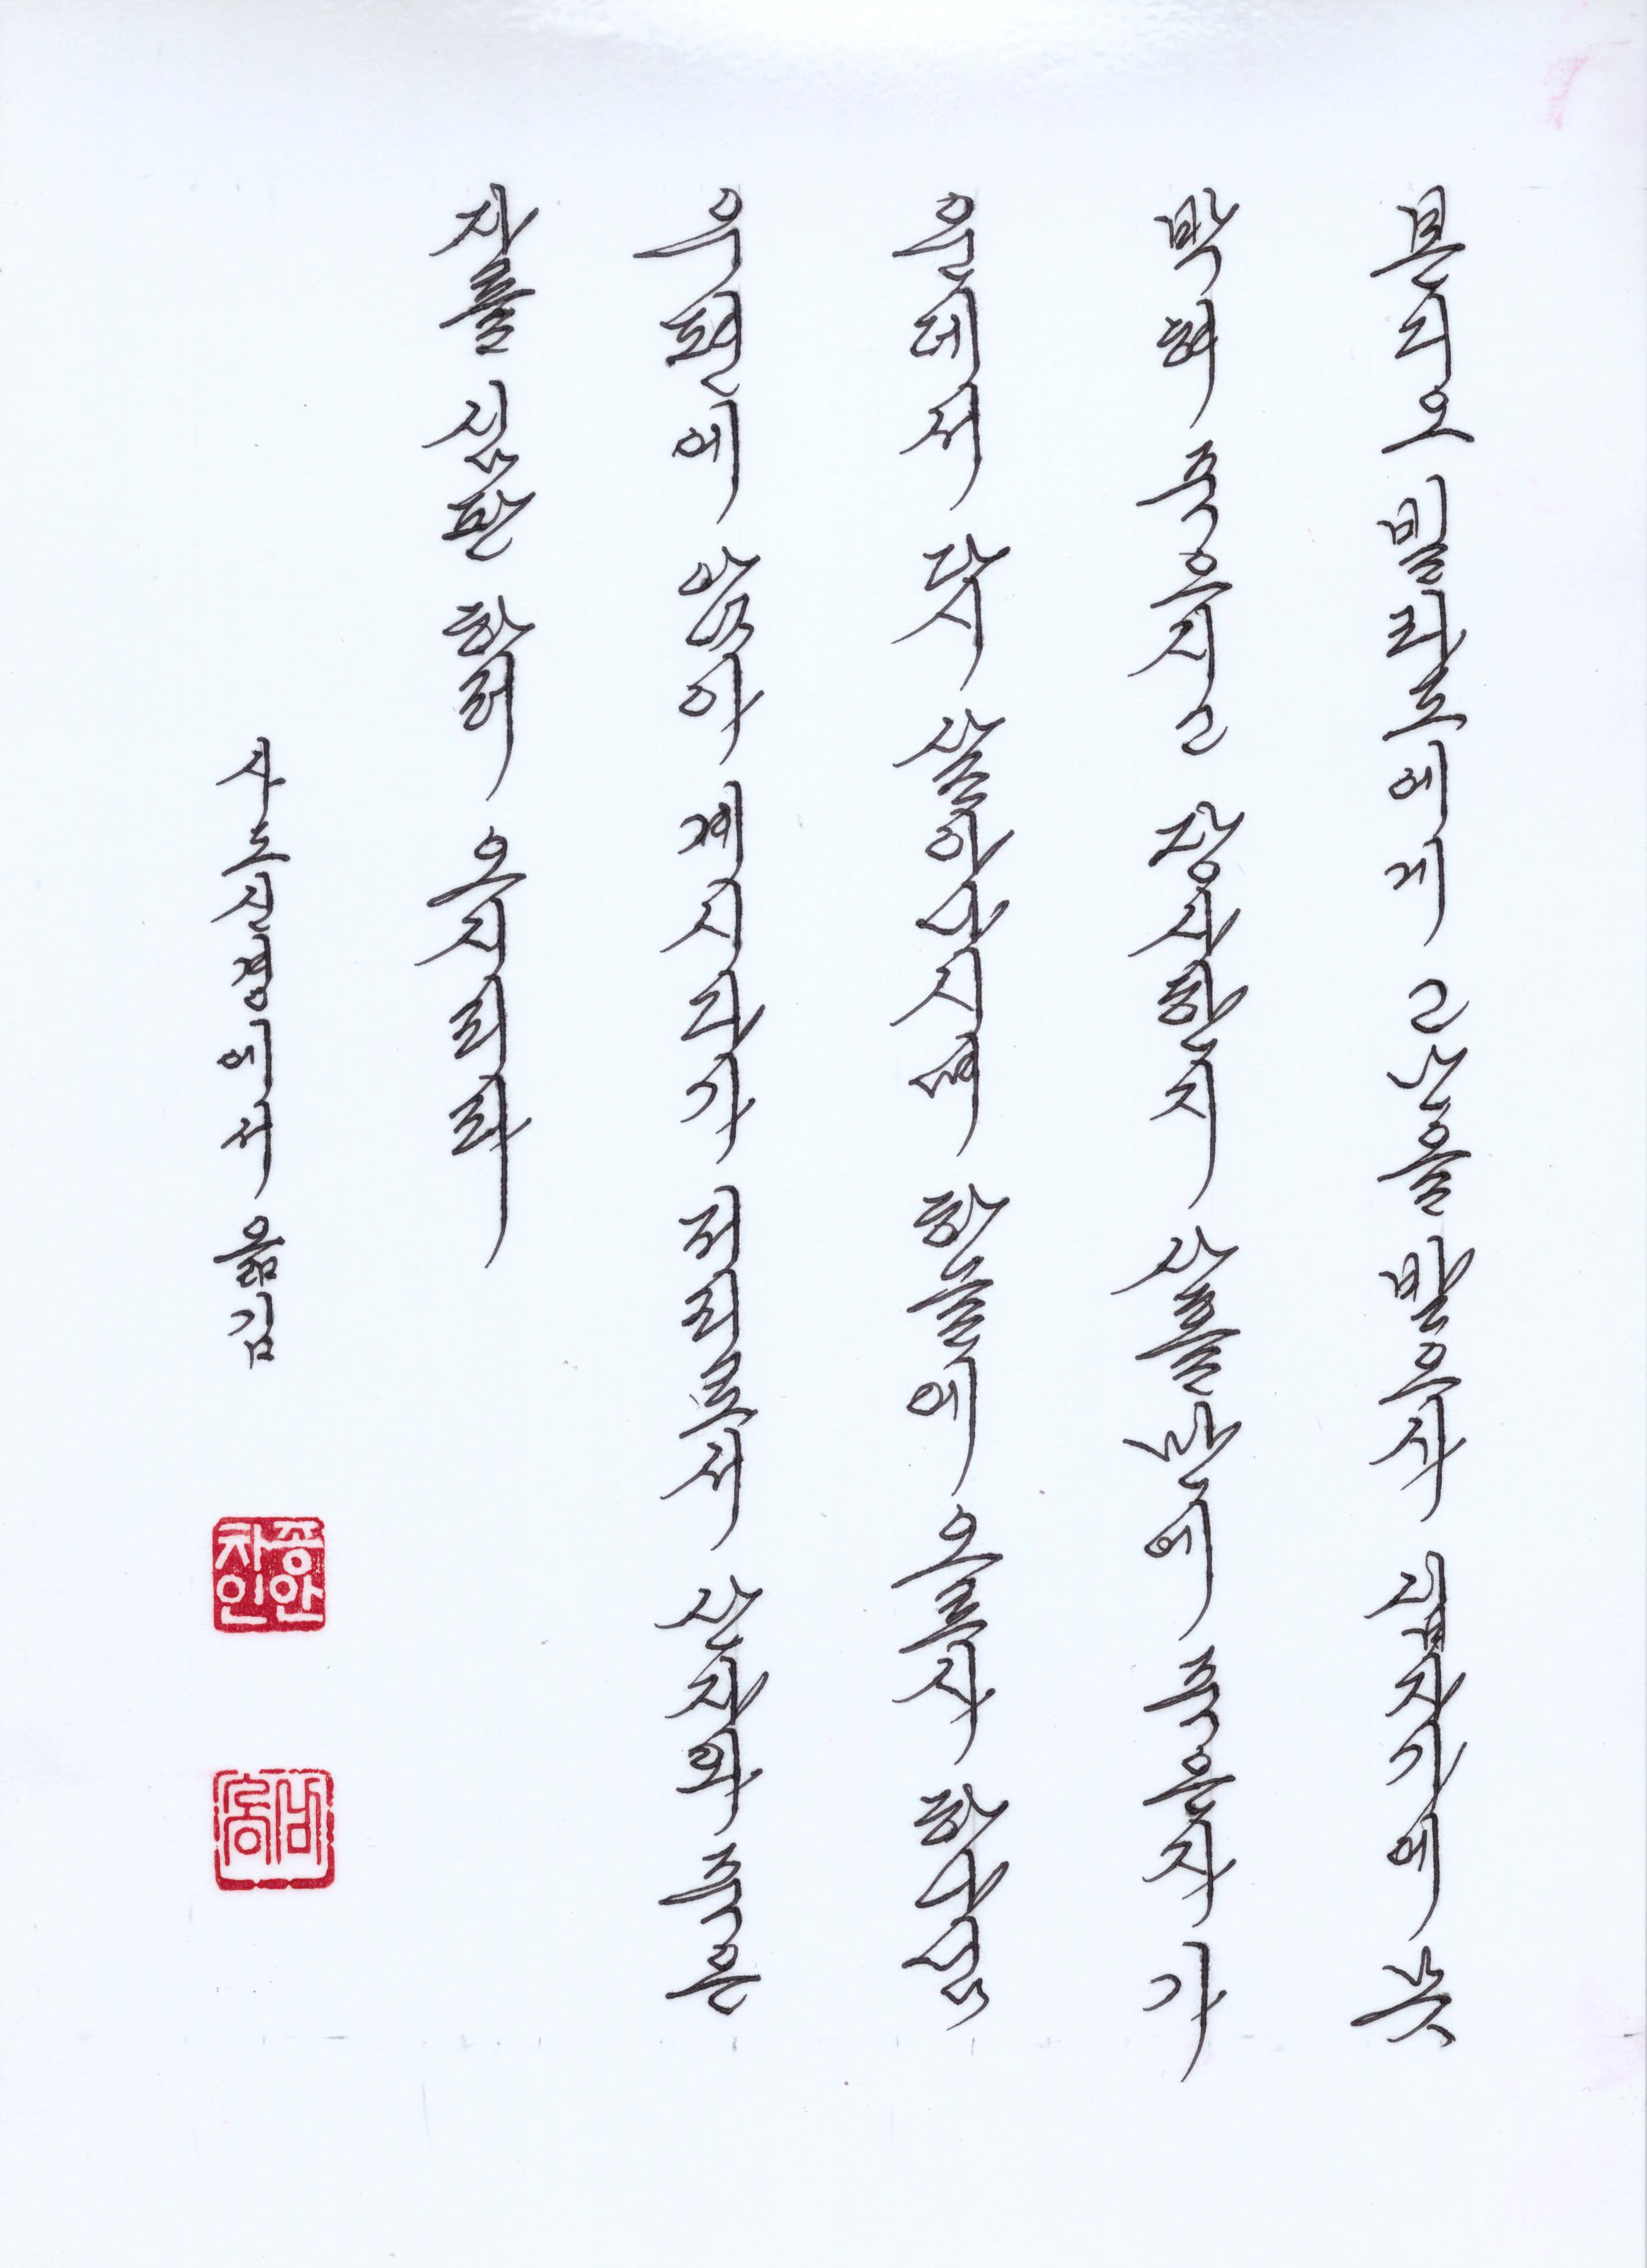 본디오 빌라도에게 고난을 받으사 십자가에 못
박혀 죽으시고 장사한지 사흘만에 죽은자 가
운데서 다시 살아나시며 하늘에 오르사 하나님
우편에 앉아 계시다가 저리로서 산자와 죽은
자를 심판 하러 오시리라
사도신경에서 옮김
차종
인안